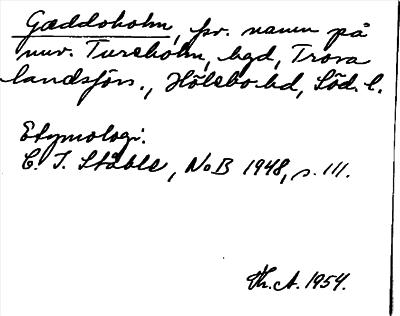 Gæddoholm, fsv. namn på
nuv. Tureholm, hgd, Trosa
landsförs., Hölebo hd, Söd. l.
Etymologi:
C. I. Ståhle, NoB 1948, s. 111.
Th. A. 1954.